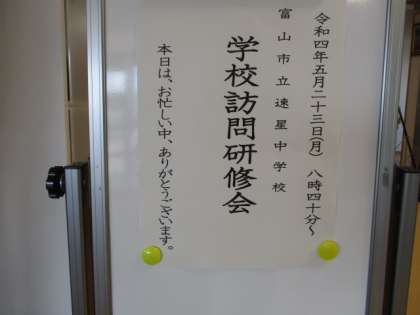 令和四年五月二十三日(月) 八時四十分～
富山市立速星中学校
学校訪問研修会
本日は、お忙しい中、ありがとうございます。